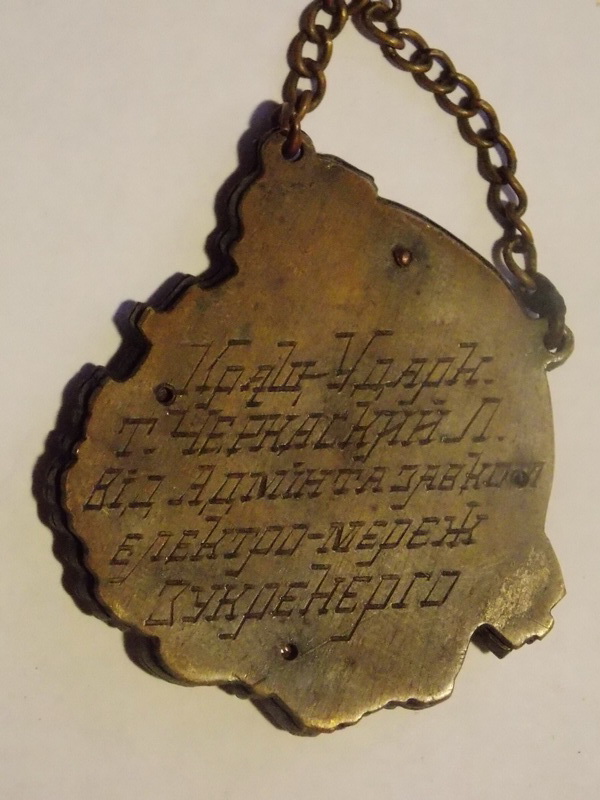 Кращ-Ударн.
т. Черкаский Л.
від Адмінта завкома
електро-мереж
Зукренерго